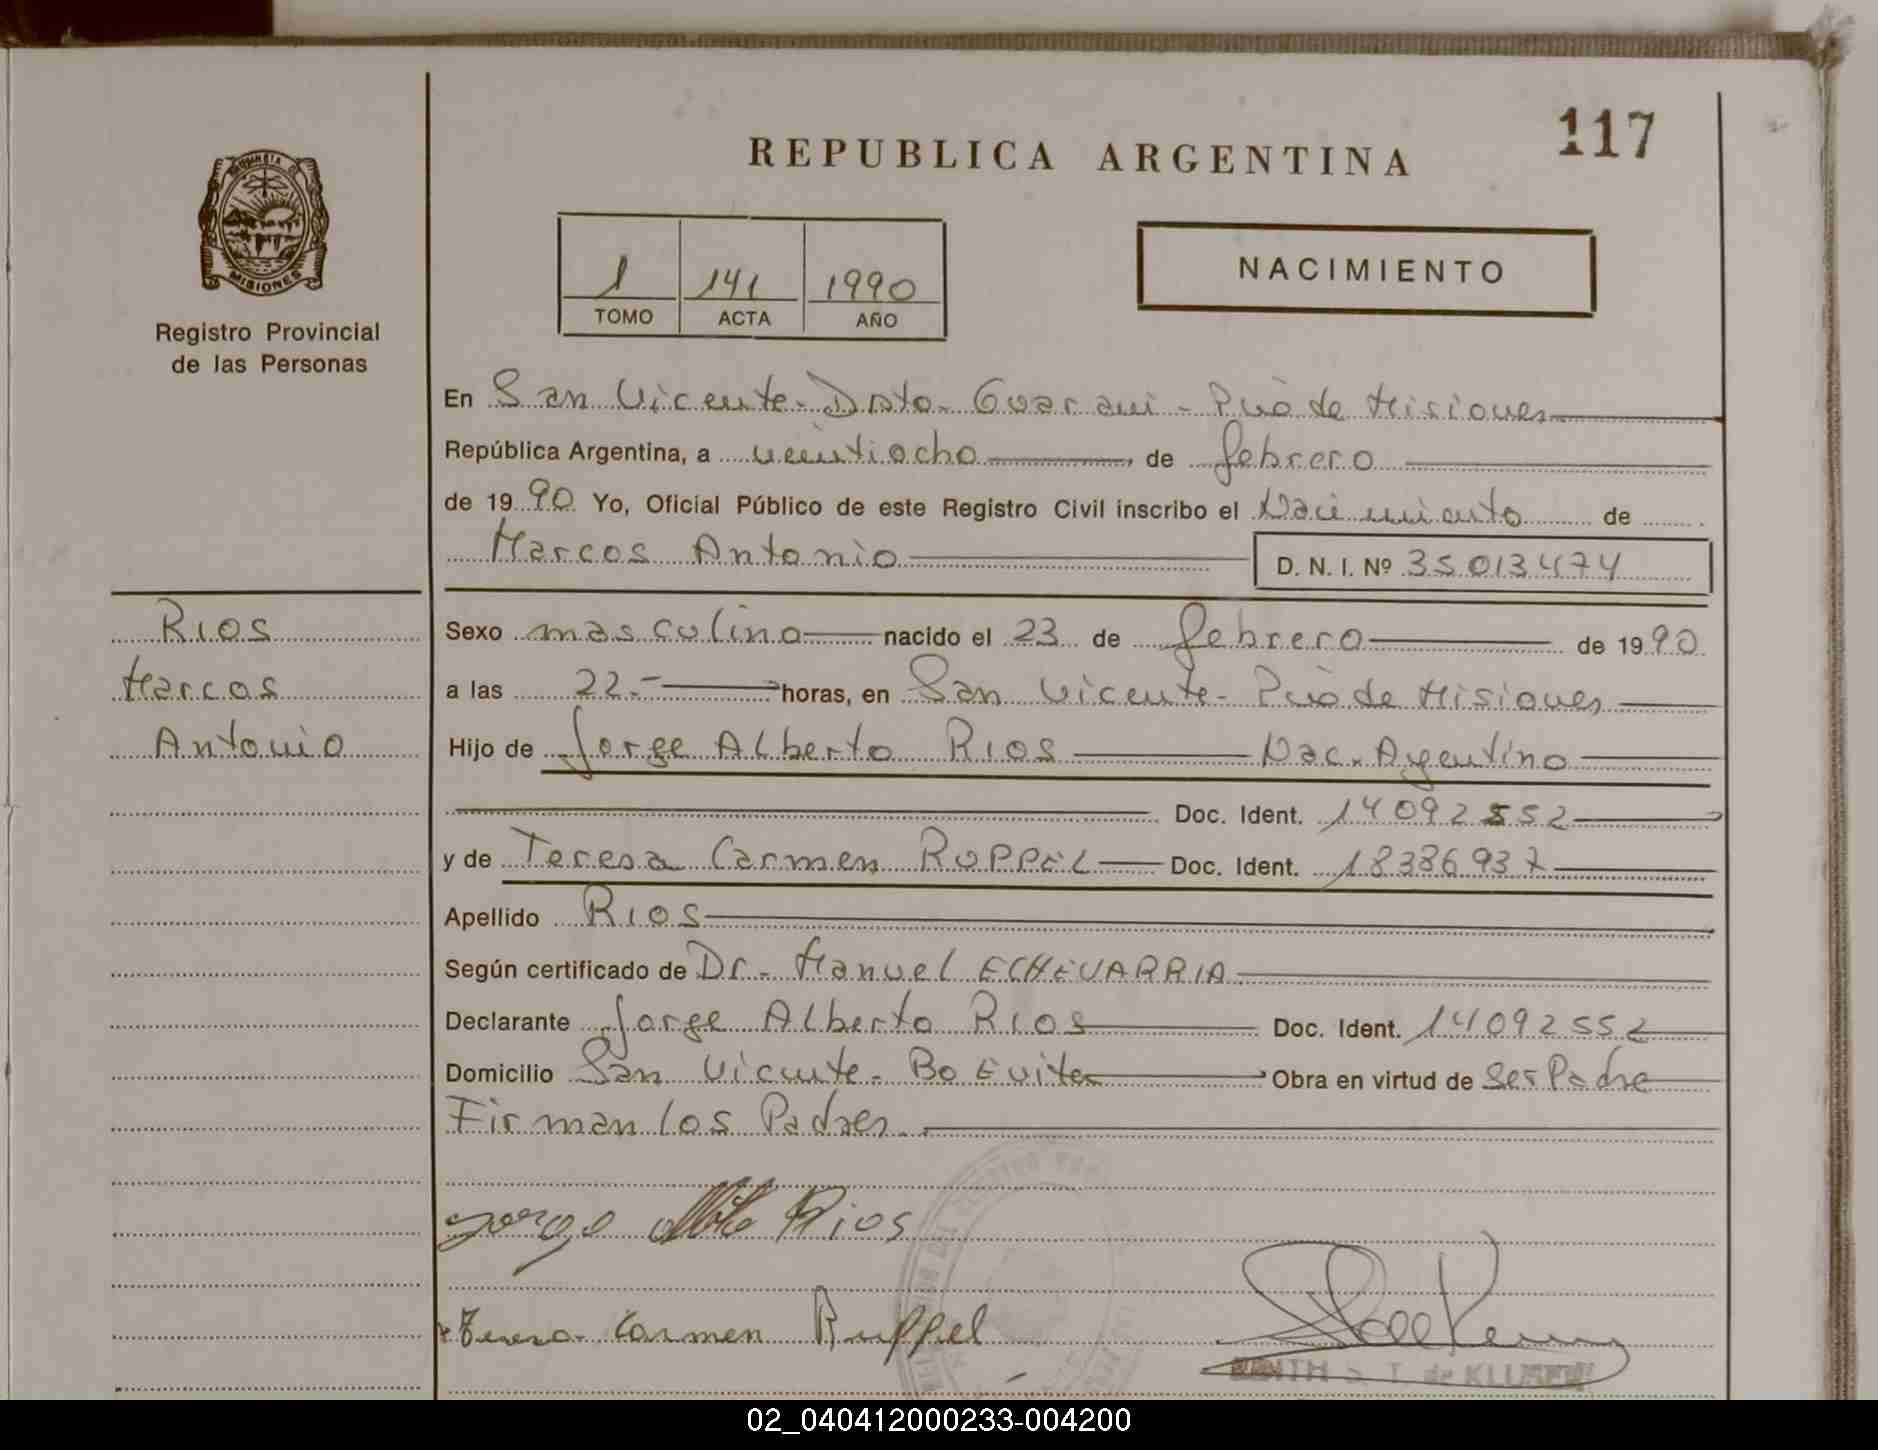 117
REPUBLICA ARGENTINA
MISIONES
Registro Provincial
de las Personas
1 141 1990
TOMO ACTA AÑO
NACIMIENTO
En San Vicente - Dpto - Guarani - Pcia de Misiones
República Argentina, a veintiocho de febrero
de 1990 Yo, Oficial Público de este Registro Civil inscribo el Nacimiento de
Marcos Antonio D. N. I. Nº 35013474
RIOS
Marcos
Antonio
Sexo masculino nacido el 23 de febrero de 1990
a las 22.- horas, en San Vicente - Pcia de Misiones
Hijo de Jorge Alberto RIOS Nac. Argentino
Doc. Ident. 14092552
y de Teresa Carmen RUPPEL Doc. Ident. 18386937
Apellido RIOS
Según certificado de Dr. Manuel ECHEVARRIA
Declarante Jorge Alberto RIOS Doc. Ident. 14092552
Domicilio San Vicente - Bo Evita Obra en virtud de ser Padre
Firman los Padres.
Jorge Rios
Teresa Carmen Ruppel
T. de
02_040412000233-004200